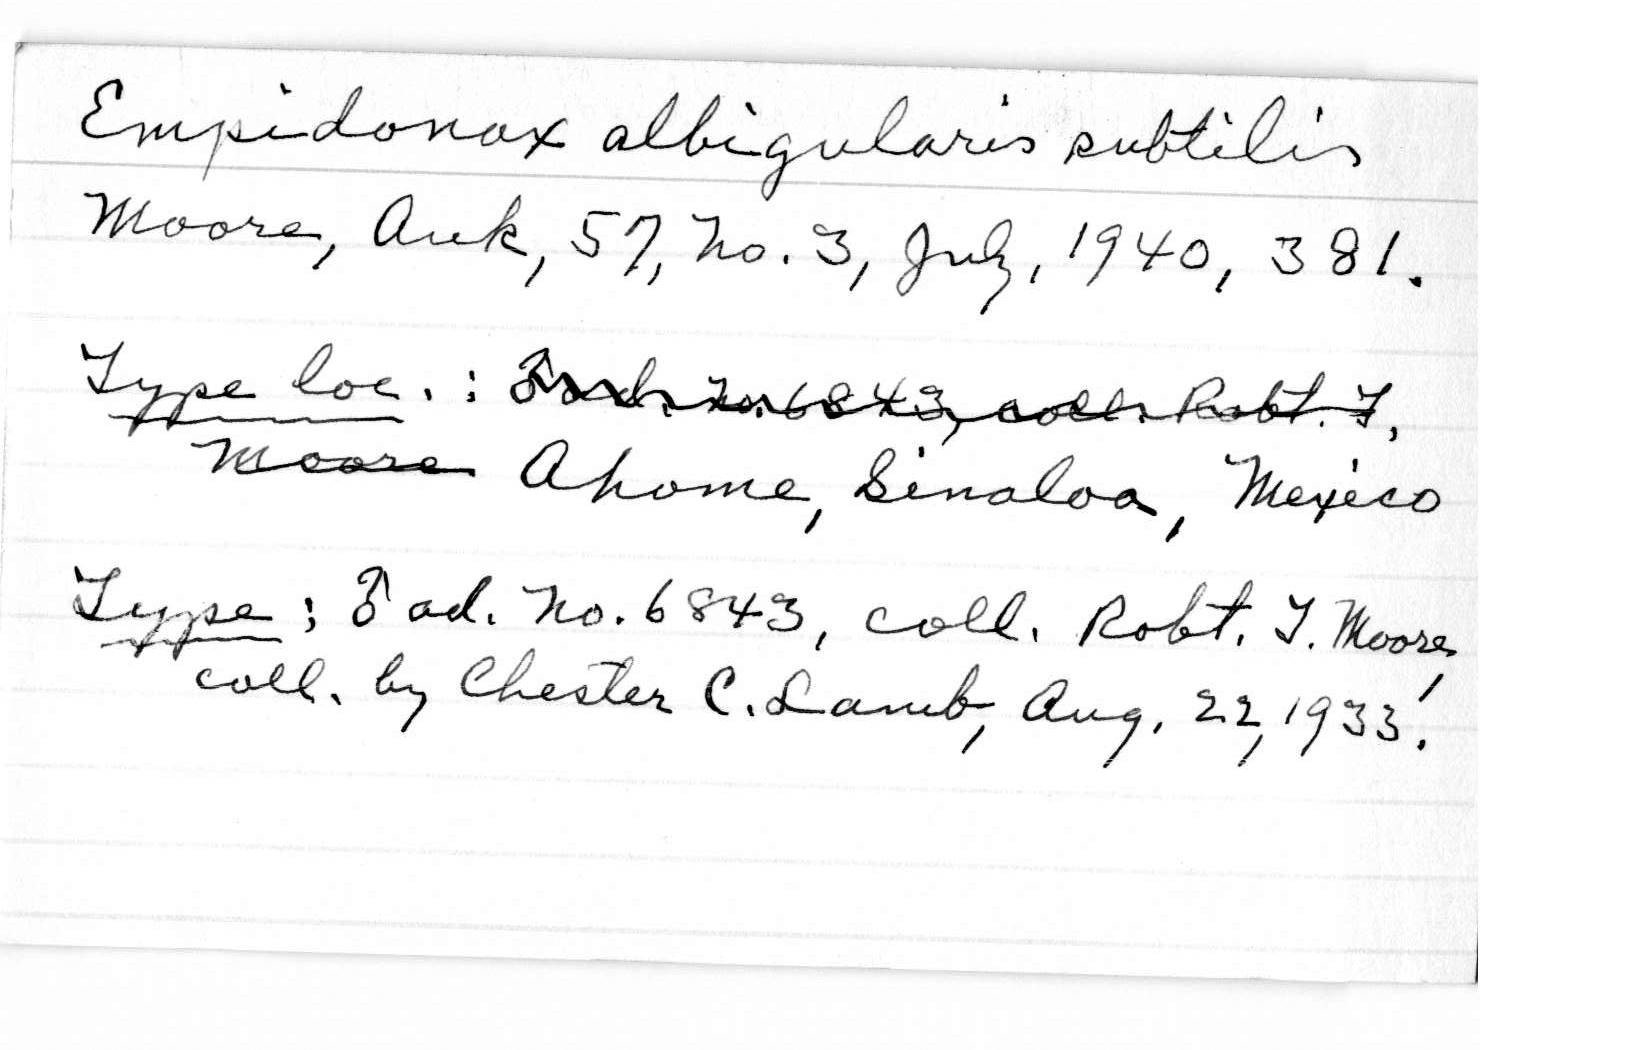 Empidonax albigularis subtilis
Moore, Auk, 57, No. 3, July, 1940, 381.
Type loc. : ♂ ad. No. 6843, coll. Robt. T.
Moore Ahome, Sinaloa, Mexico
Type : ♂ ad. No. 6843, coll. Robt. T. Moore,
coll. by Chester C. Lamb, Aug. 22, 1933.